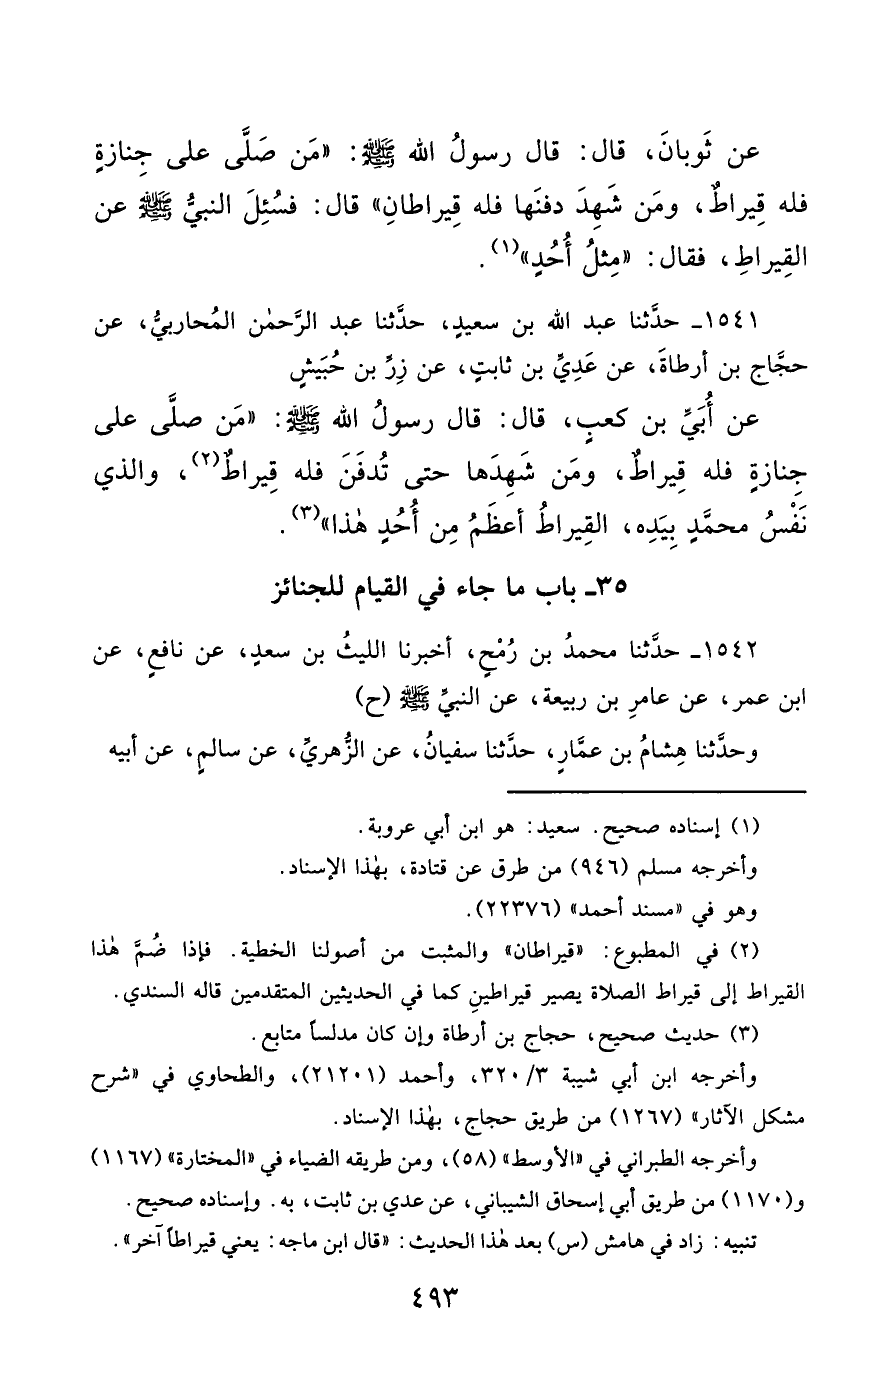 عن ثَوبانَ، قال: قال رسولُ الله ﷺ: «مَن صَلَّى على جِنازةٍ
فله قِيراطٌ، ومَن شَهِدَ دفنَها فله قِيراطانِ» قال: فسُئِلَ النبيُّ ﷺ عن
القِيراطِ، فقال: «مِثلُ أُحُدٍ»(١).
١٥٤١ـ حدَّثنا عبد الله بن سعيدٍ، حدَّثنا عبد الرَّحمٰن المُحاربيُّ، عن
حجَّاج بن أرطاةَ، عن عَدِيِّ بن ثابتٍ، عن زِرِّ بن حُبَيشٍ
عن أُبَيِّ بن كعبٍ، قال: قال رسولُ الله ﷺ: «مَن صلَّى على
جِنازةٍ فله قِيراطٌ، ومَن شَهِدَها حتى تُدفَنَ فله قِيراطٌ(٢)، والذي
نَفْسُ محمَّدٍ بِيَدِه، القِيراطُ أعظَمُ مِن أُحُدٍ هٰذا»(٣).
٣٥ـ باب ما جاء في القيام للجنائز
١٥٤٢ـ حدَّثنا محمدُ بن رُمْحٍ، أخبرنا الليثُ بن سعدٍ، عن نافعٍ، عن
ابن عمر، عن عامرِ بن ربيعة، عن النبيِّ ﷺ (ح)
وحدَّثنا هِشامُ بن عمَّارٍ، حدَّثنا سفيانُ، عن الزُّهريِّ، عن سالمٍ، عن أبيه
(١) إسناده صحيح. سعيد: هو ابن أبي عروبة.
وأخرجه مسلم (٩٤٦) من طرق عن قتادة، بهٰذا الإسناد.
وهو في «مسند أحمد» (٢٢٣٧٦).
(٢) في المطبوع: «قيراطان» والمثبت من أصولنا الخطية. فإذا ضُمَّ هٰذا
القيراط إلى قيراط الصلاة يصير قيراطينِ كما في الحديثين المتقدمين قاله السندي.
(٣) حديث صحيح، حجاج بن أرطاة وإن كان مدلساً متابع.
وأخرجه ابن أبي شيبة ٣/ ٣٢٠، وأحمد (٢١٢٠١)، والطحاوي في «شرح
مشكل الآثار» (١٢٦٧) من طريق حجاج، بهٰذا الإسناد.
وأخرجه الطبراني في «الأوسط» (٥٨)، ومن طريقه الضياء في «المختارة» (١١٦٧)
و(١١٧٠) من طريق أبي إسحاق الشيباني، عن عدي بن ثابت، به. وإسناده صحيح.
تنبيه: زاد في هامش (س) بعد هٰذا الحديث: «قال ابن ماجه: يعني قيراطاً آخر».
٤٩٣